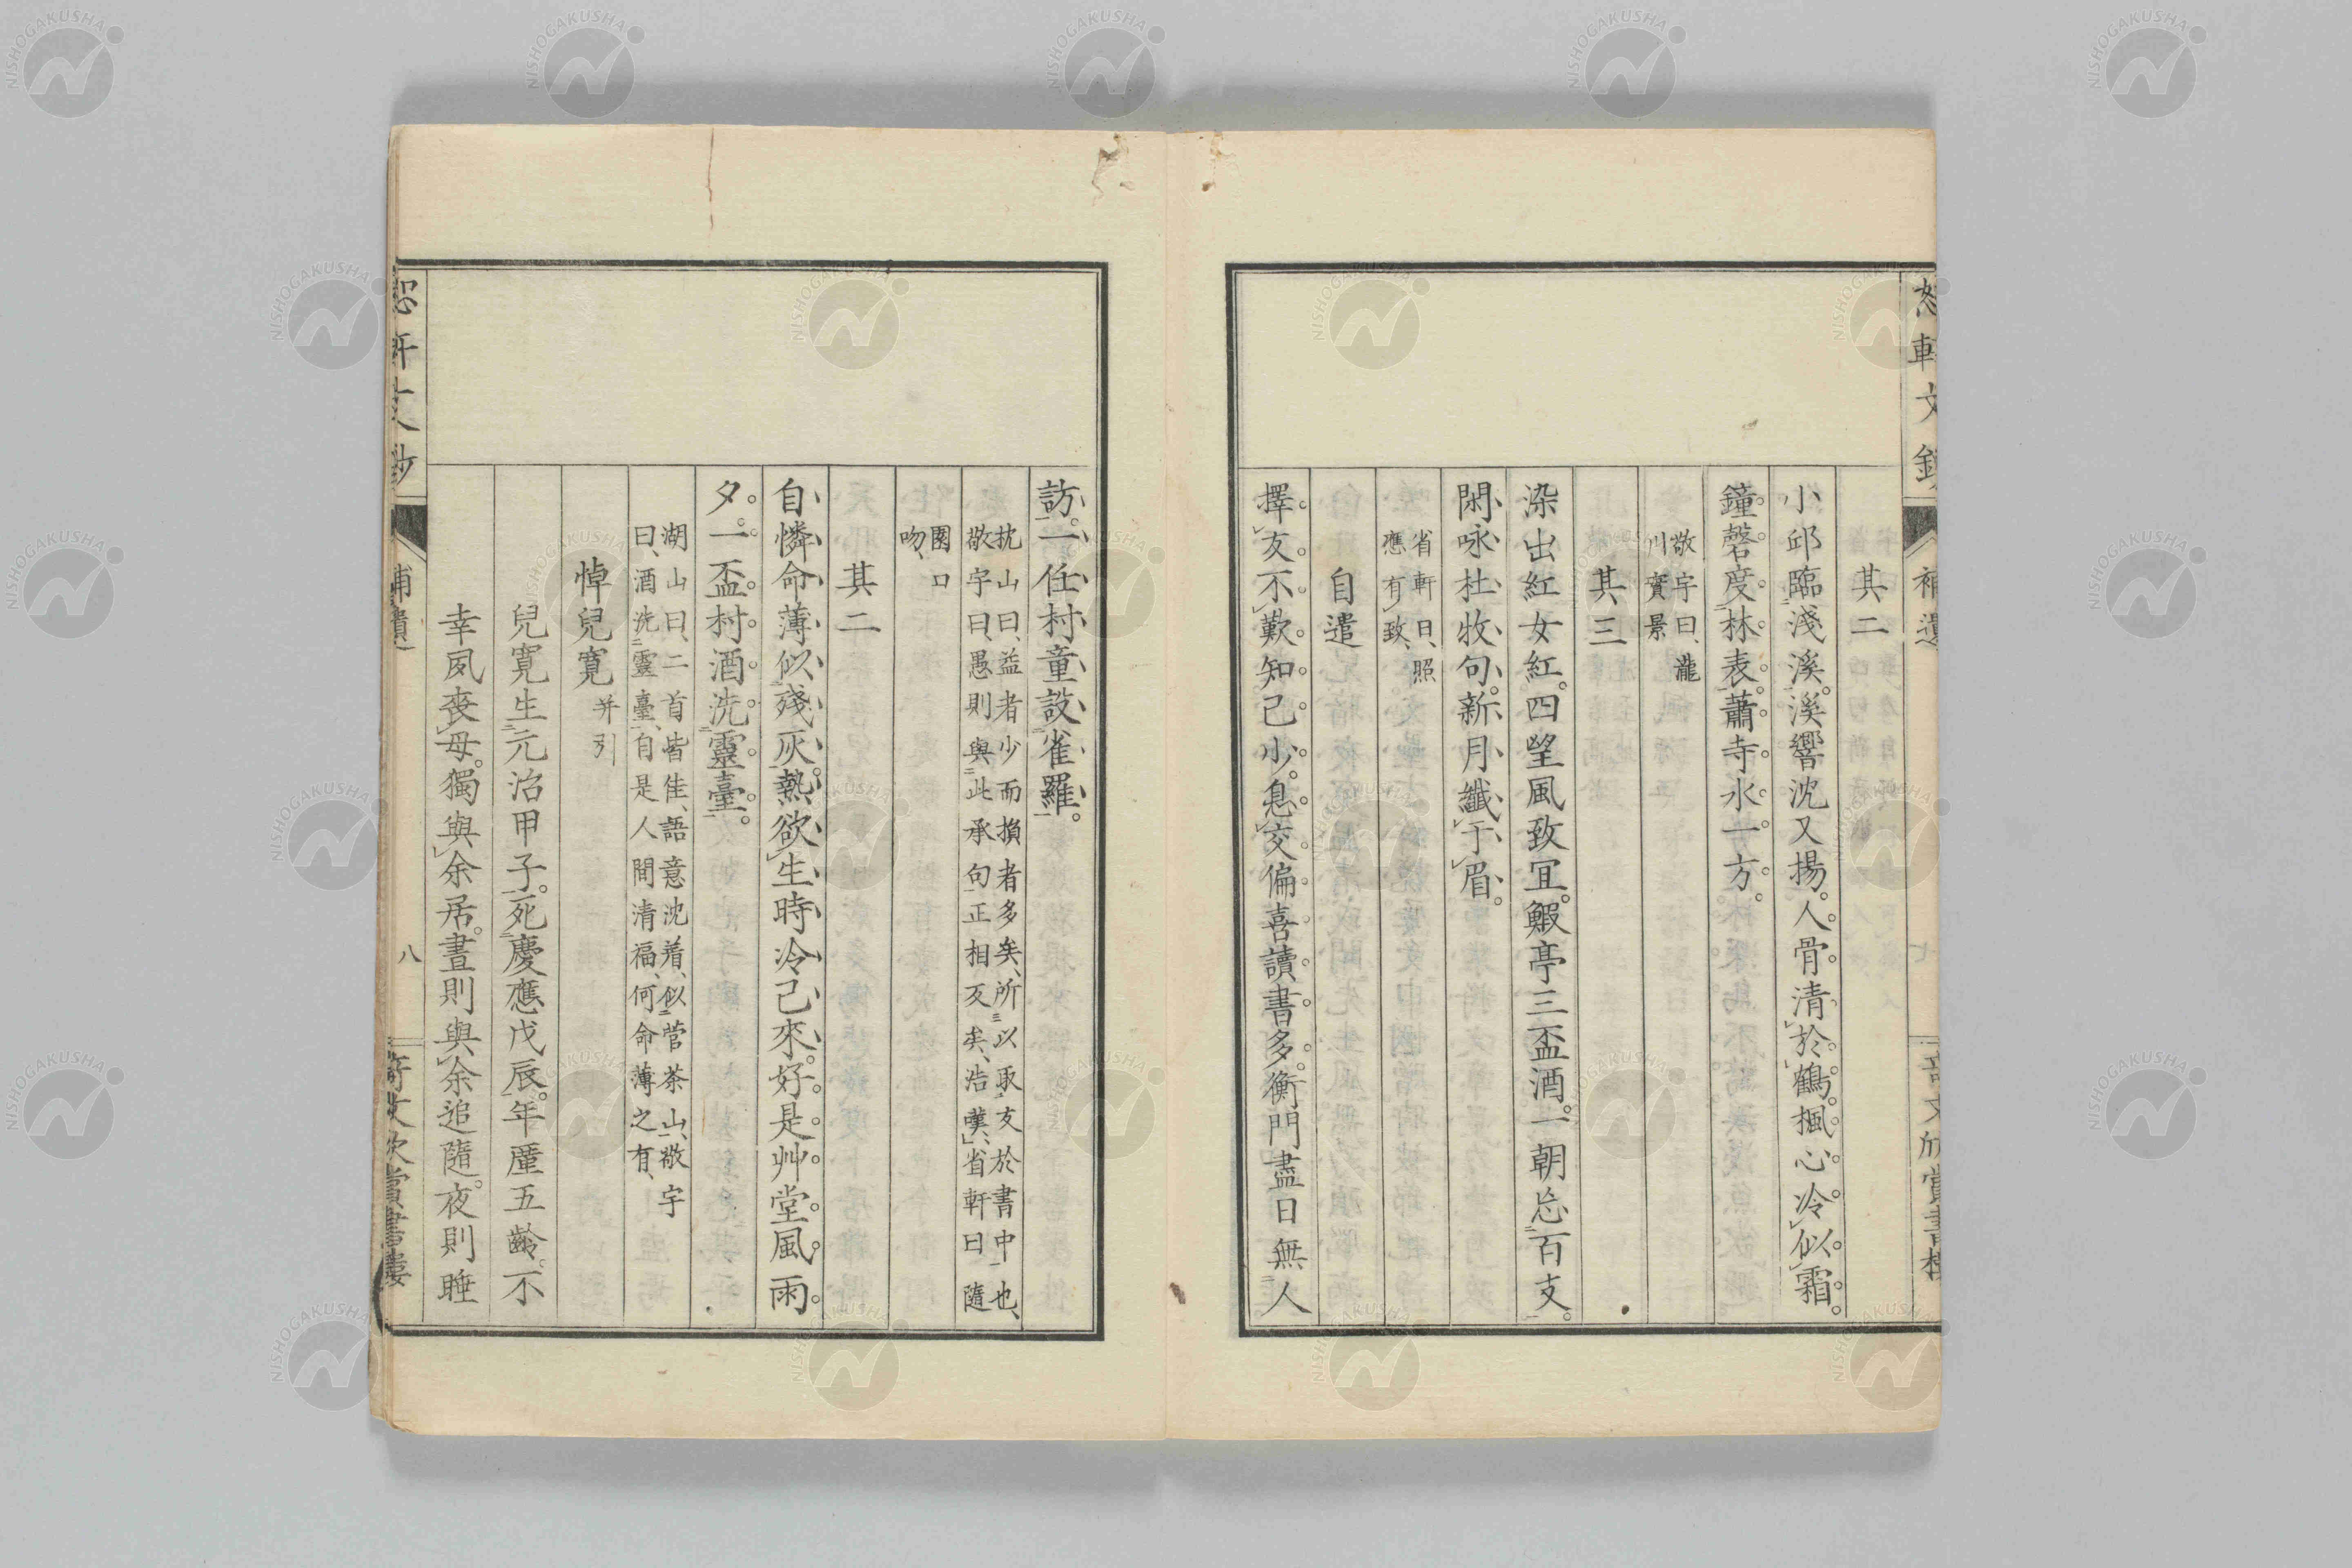 其二
小邱臨淺溪。溪響沈又揚。人骨清於鶴。楓心冷似霜。
鐘磬度林表。蕭寺水一方。
敬宇曰、瀧
川實景
其三
染出紅女紅。四望風致宜。鰕亭三盃酒。一朝忘百支。
閑咏杜牧句。新月纖于眉。
省軒曰、照
應有致、
自遣
擇友不歎知己少。息交偏喜讀書多。衡門盡日無人
訪。一任村童設雀羅。
枕山曰、益者少而損者多矣、所以取友於書中也、
敬宇曰、愚則與此承句正相反矣、浩嘆、省軒曰隨
園口
吻、
其二
自憐命薄似殘灰。熱欲生時冷已來。好是艸堂風雨
夕。一盃村酒洗靈臺。
湖山曰、二首皆佳、語意沈着、似菅茶山、敬宇
曰、酒洗靈臺、自是人間清福、何命薄之有、
悼兒寛 并引
兒寛生元治甲子。死慶應戊辰。年廑五齡。不
幸夙喪母。獨與余居。晝則與余追隨。夜則睡
補遺
八
奇文欣賞書樓
NISHOGAKUSHA